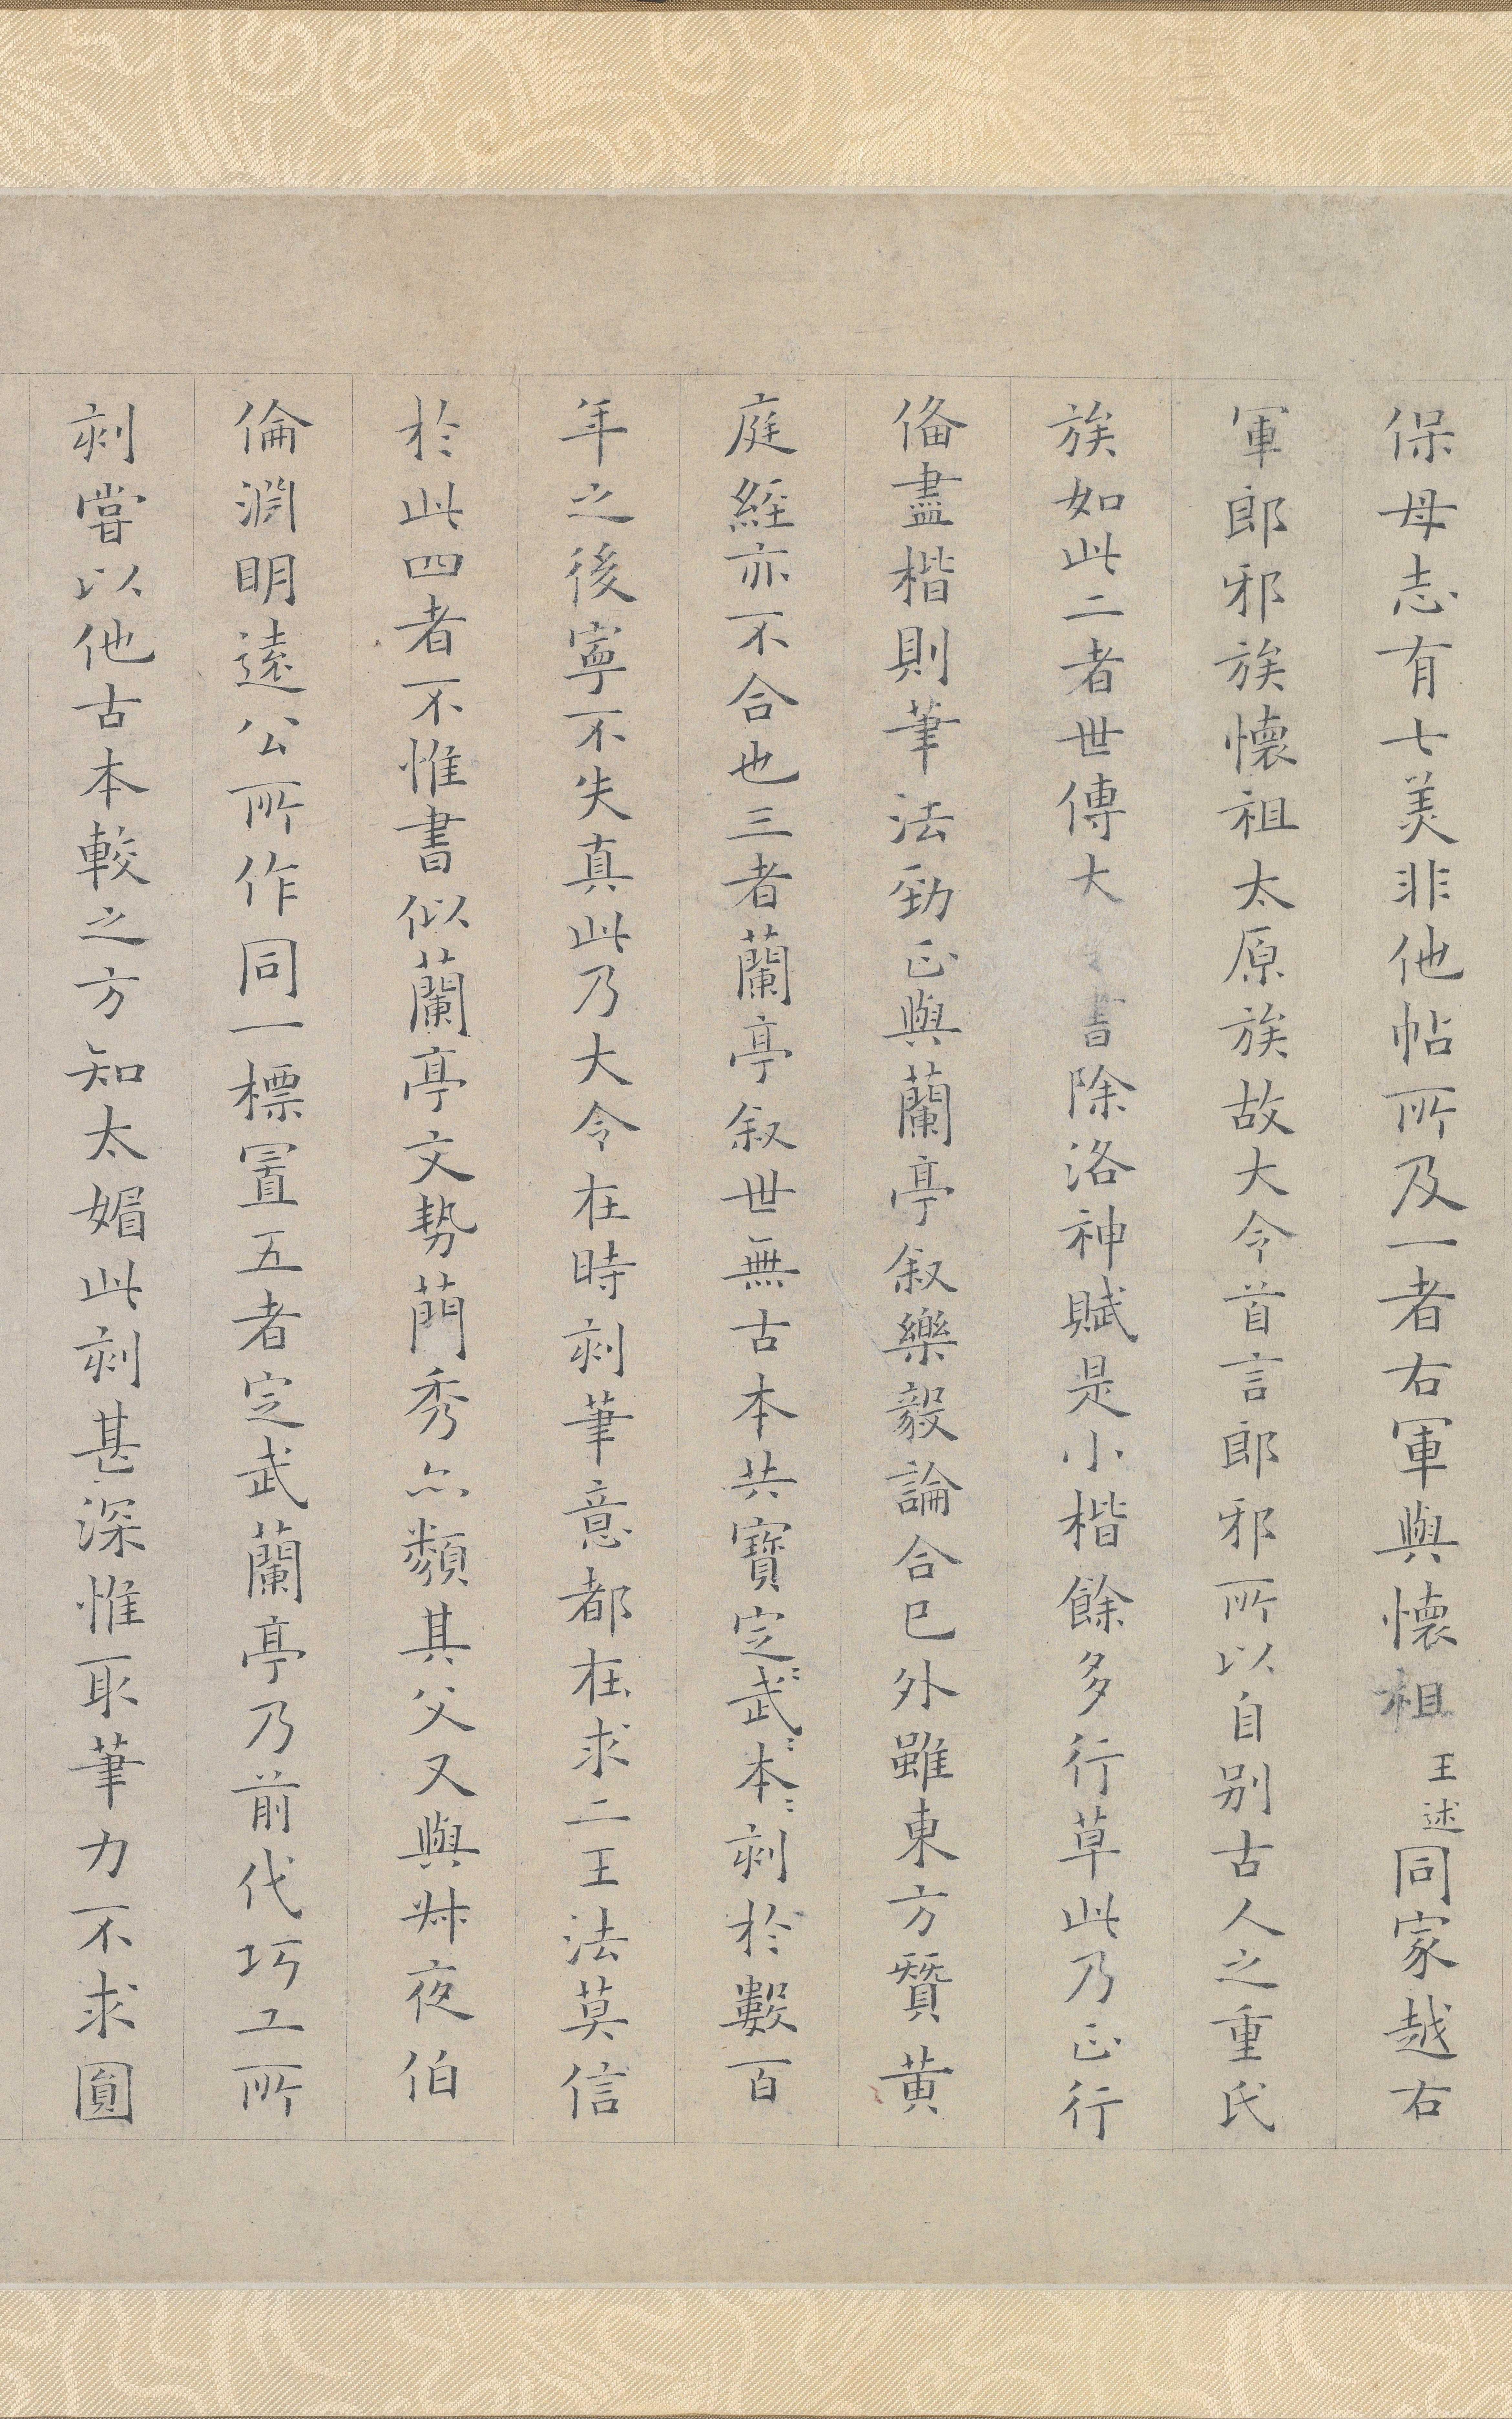 保母志有七美非他帖所及一者右軍與懷祖王述同家越右
軍郎邪族懷祖太原族故大令首言郎邪所以自别古人之重氏
族如此二者世傳大令書除洛神賦是小楷餘多行草此乃正行
俻盡楷則筆法勁正與蘭亭叙樂毅論合巳外雖東方贊黄
庭經亦不合也三者蘭亭叙世無古本共寶定〻武〻本〻刻於數百
年之後寧不失真此乃大令在時刻筆意都在求二王法莫信
於此四者不惟書似蘭亭文勢蕳秀亦類其父又與叔夜伯
倫淵明遠公所作同一標置五者定武蘭亭乃前代巧工所
刻嘗以他古本較之方知太媚此刻甚深惟取筆力不求圓